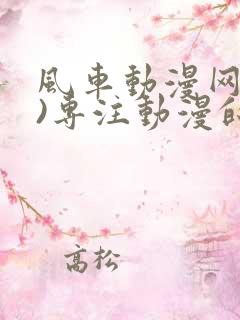 風車動漫网
)专注動漫的
高松